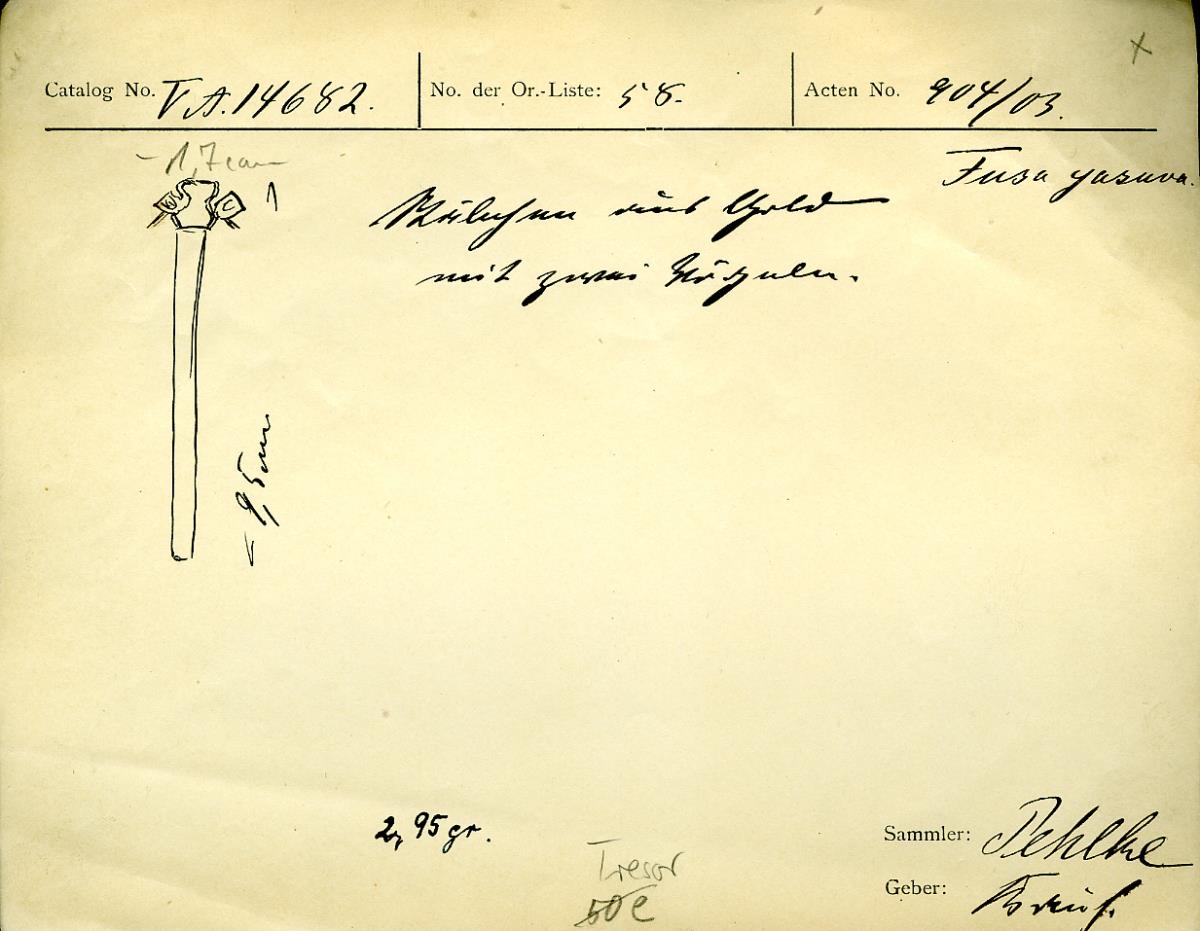 Catalog No. VA. 14682.
No. der Or.-Liste: 58.
Acten No. 904/03.
Fusagasuga.
1,7 cm
aus Gold
mit zwei Vögeln.
9,5 cm
2,95 gr.
Tresor
50 e
Sammler: Pehlke
Geber: Kauf.